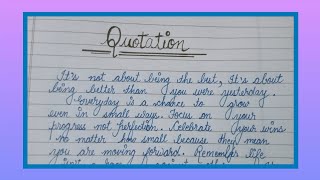 Quotation
It's not about being the best, It's about
being better than you were yesterday.
Everyday is a chance to grow
even in small ways. Focus on your
progress not perfection. Celebrate your wins
no matter how small because they mean
you are moving forward. Remember life